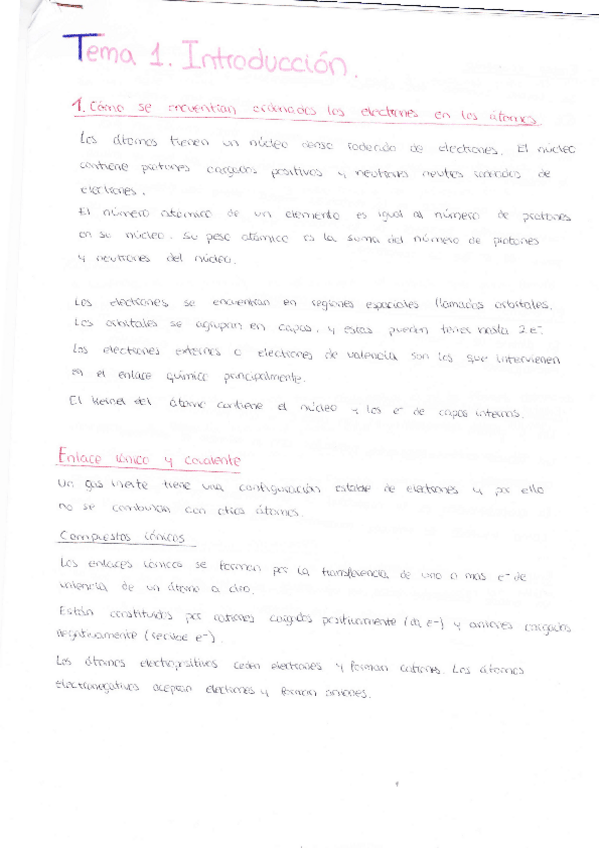 Tema 1. Introducción.
1. Cómo se encuentran ordenados los electrones en los átomos
Los átomos tienen un núcleo denso rodeado de electrones. El núcleo
contiene protones cargados positivos y neutrones neutros rodeados de
electrones.
El número atómico de un elemento es igual al número de protones
en su núcleo. Su peso atómico es la suma del número de protones
y neutrones del núcleo.
Los electrones se encuentran en regiones espaciales llamadas orbitales.
Los orbitales se agrupan en capas, y estas pueden tener hasta 2e-.
Los electrones externos o electrones de valencia son los que intervienen
en el enlace químico principalmente.
El Kernel del átomo contiene el núcleo y los e- de capas internas.
Enlace iónico y covalente
Un gas inerte tiene una configuración estable de electrones y por ello
no se combinan con otros átomos.
Compuestos iónicos
Los enlaces iónicos se forman por la transferencia de uno o mas e- de
valencia de un átomo a otro.
Están constituidos por cationes cargados positivamente (da e-) y aniones cargados
negativamente (recibe e-).
Los átomos electropositivos ceden electrones y forman cationes. Los átomos
electronegativos aceptan electrones y forman aniones.